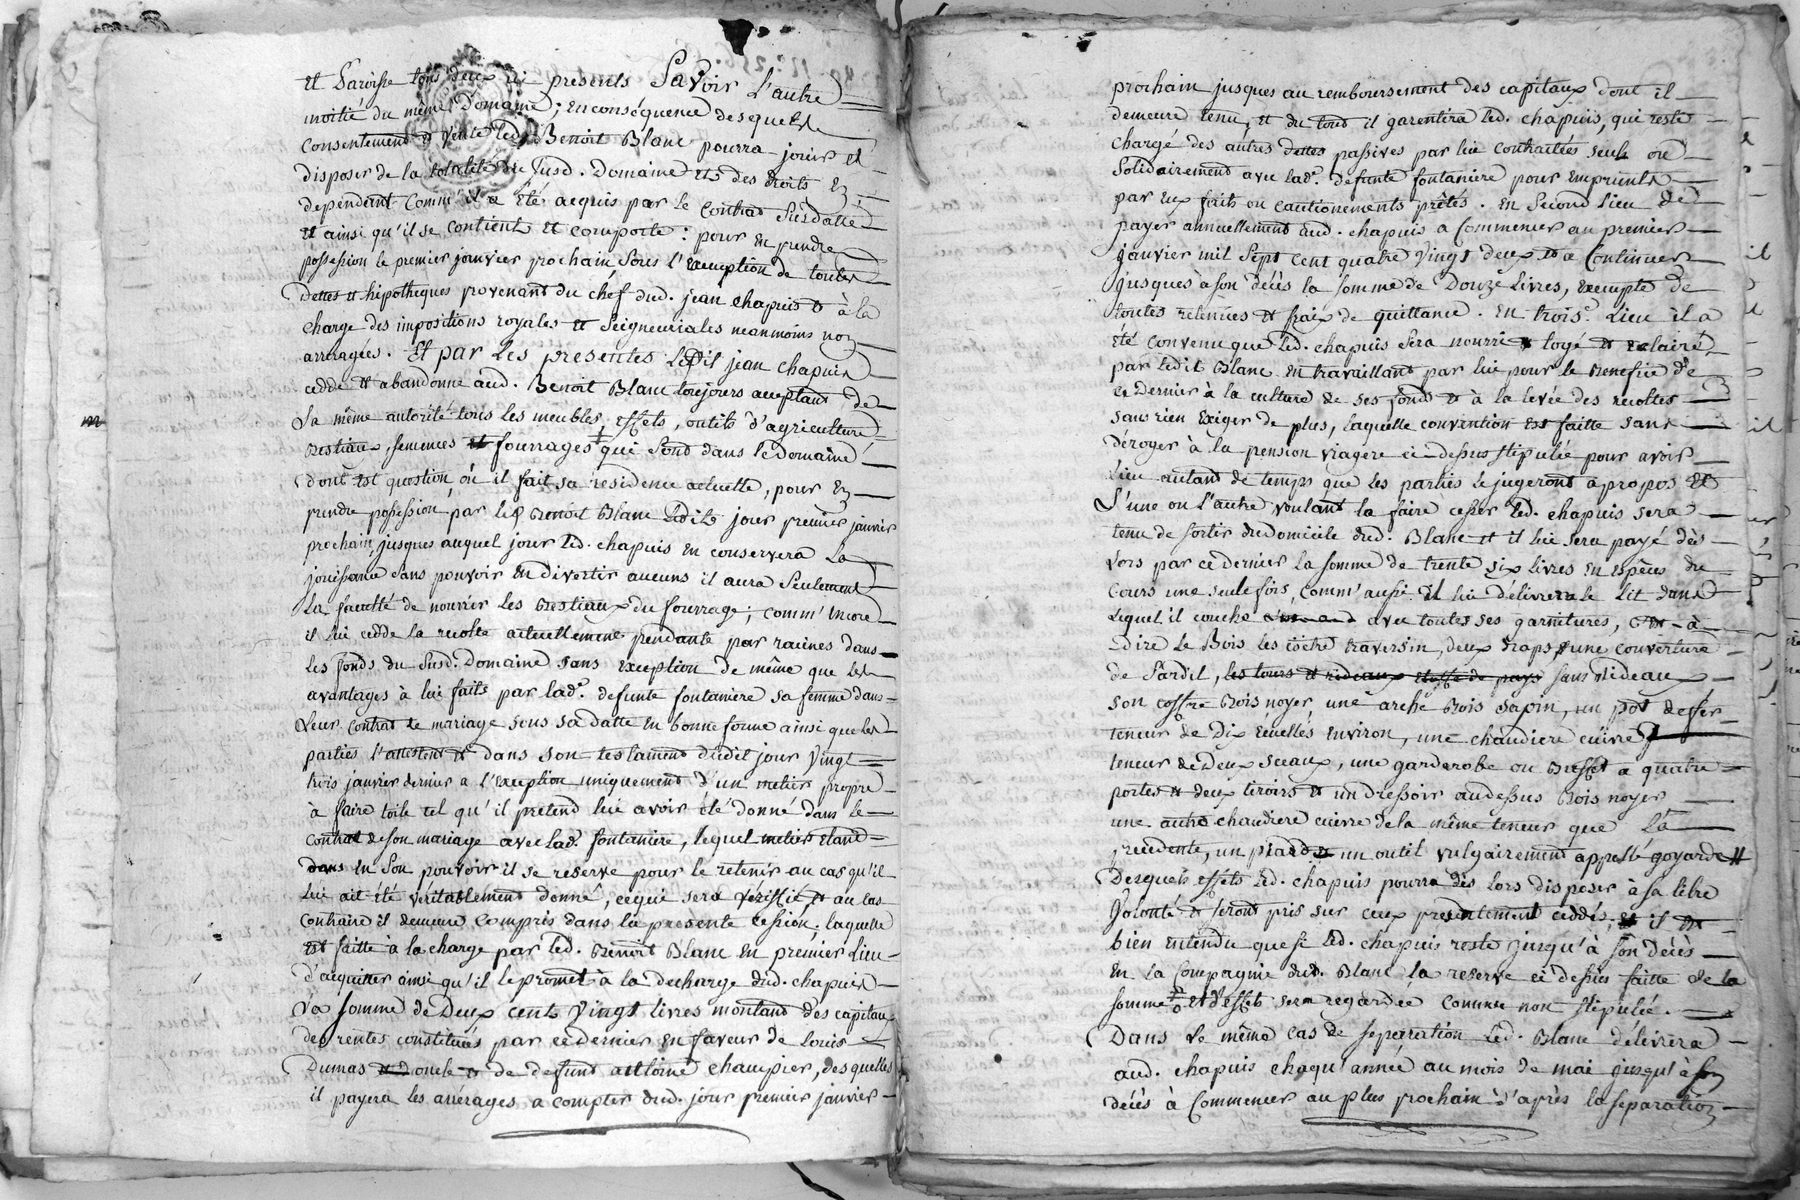 et Paroisse tous deux ici presents Savoir L'autre
moitié du même Domaine; en conséquence desquels
consentement & vente led. Benoit Blanc pourra jouir et
disposer de la totalité du susd. Domaine et des droits en
dependant comm' il a été acquis par le contrat susdatté
et ainsi qu'il se contient et comporte: pour en prendre
possession le premier janvier prochain sous l'exception de toutes
Dettes et hipotheques provenant du chef dud. jean chapuis & à la
charge des impositions royales et seigneuriales neanmoins non
arreragées. Et par les presentes ledit jean chapuis
cedde et abandonne aud. Benoit Blanc toujours acceptant de
sa même autorité tous les meubles, effets, outils d'agriculture
Bestiaux, semences et fourrages qui sont dans le Domaine
dont est question, où il fait sa residence actuelle, pour en
prendre possession par led. Benoit Blanc ledit jour premier janvier
prochain, jusques auquel jour led. chapuis en conservera la
jouissance sans pouvoir en divertir aucuns il aura seulement
la faculté de nourrir les Bestiaux du fourrage; comm' encore
il lui cedde la recolte actuellement pendante par racines dans
les fonds du susd. Domaine sans exception de même que les
avantages à lui faits par lad.e defunte fontaniere sa femme dans
leur contrat de mariage sous sa datte en bonne forme ainsi que les
parties l'attestent & dans son testament dudit jour vingt
trois janvier dernier a l'exception uniquement d'un metier propre
à faire toile tel qu'il pretend lui avoir été donné dans le
contrat de son mariage avec lad.e fontaniere, lequel metier etant
dans en son pouvoir il se reserve pour le retenir au cas qu'il
lui ait été véritablement donné, ce qui sera vérifié, & au cas
contraire il demeure compris dans la presente cession; laquelle
est faitte à la charge par led. Benoit Blanc en premier Lieu
d'acquitter ainsi qu'il le promet à la decharge dud. chapuis
la somme de Deux cent vingt livres montant des capitaux
des rentes constituées par ce dernier en faveur de Louis
Dumas & de defunt antoine champier, desquelles
il payera les arrérages a compter dud. jour premier janvier
prochain jusques au remboursement des capitaux dont il
demeure tenu, et du tout il garentira led. chapuis, qui reste
chargé des autres dettes passives par lui contractées seul ou
solidairement avec lad.e defunte fontaniere pour emprunts
par eux faits ou cautionements prêtés. En second lieu de
payer annuellement aud. chapuis a commencer au premier
janvier mil sept cent quatre vingt deux & a continuer
jusques à son décès la somme de Douze Livres, exempte de
toutes retenües & fraix de quittance. En trois.e Lieu il a
été convenu que led. chapuis sera nourri & logé & eclairé
par ledit Blanc en travaillant par lui pour le benefice de
ce dernier à la culture de ses fonds & à la levée des recoltes
sans rien exiger de plus, laquelle convention est faitte sans
déroger à la pension viagere ci-dessus stipulée pour avoir
lieu autant de temps que les parties le jugeront apropos et
l'une ou l'autre voulant la faire cesser led. chapuis sera
tenu de sortir du domicile dud. Blanc et il lui sera payé dès
lors par ce dernier la somme de trente six livres en espèces du
cours une seule fois, comm' aussi il lui délivrera le lit dans
lequel il couche avec toutes ses garnitures, c'est-à-
dire le Bois les coëtre traversin, deux draps & une couverture
de Sardil, les tours et rideaux etoffe de pays sans rideaux
son coffre Bois noyer, une arche Bois sapin, un pot de fer
teneur de Dix écuelles environ, une chaudiere cuivre
teneur de Deux seaux, une garderobe ou Buffet a quatre
portes & deux tiroirs & un dressoir audessus Bois noyer
une autre chaudiere cuivre de la même teneur que la
precedente, un piard & un outil vulgairement appellé goyarde et
Desquels effets led. chapuis pourra dès lors disposer à sa libre
volonté & seront pris sur ceux presentement ceddés; il est
bien entendu que si led. chapuis reste jusqu'à son décès
en la compagnie dud. Blanc la reserve ci dessus faitte de la
somme et d'effets sera regardée comme non stipulée.
Dans le même cas de separation led. Blanc délivrera
aud. chapuis chaqu' année au mois de mai jusqu'à son
décès à commencer au plus prochain d'après la separation